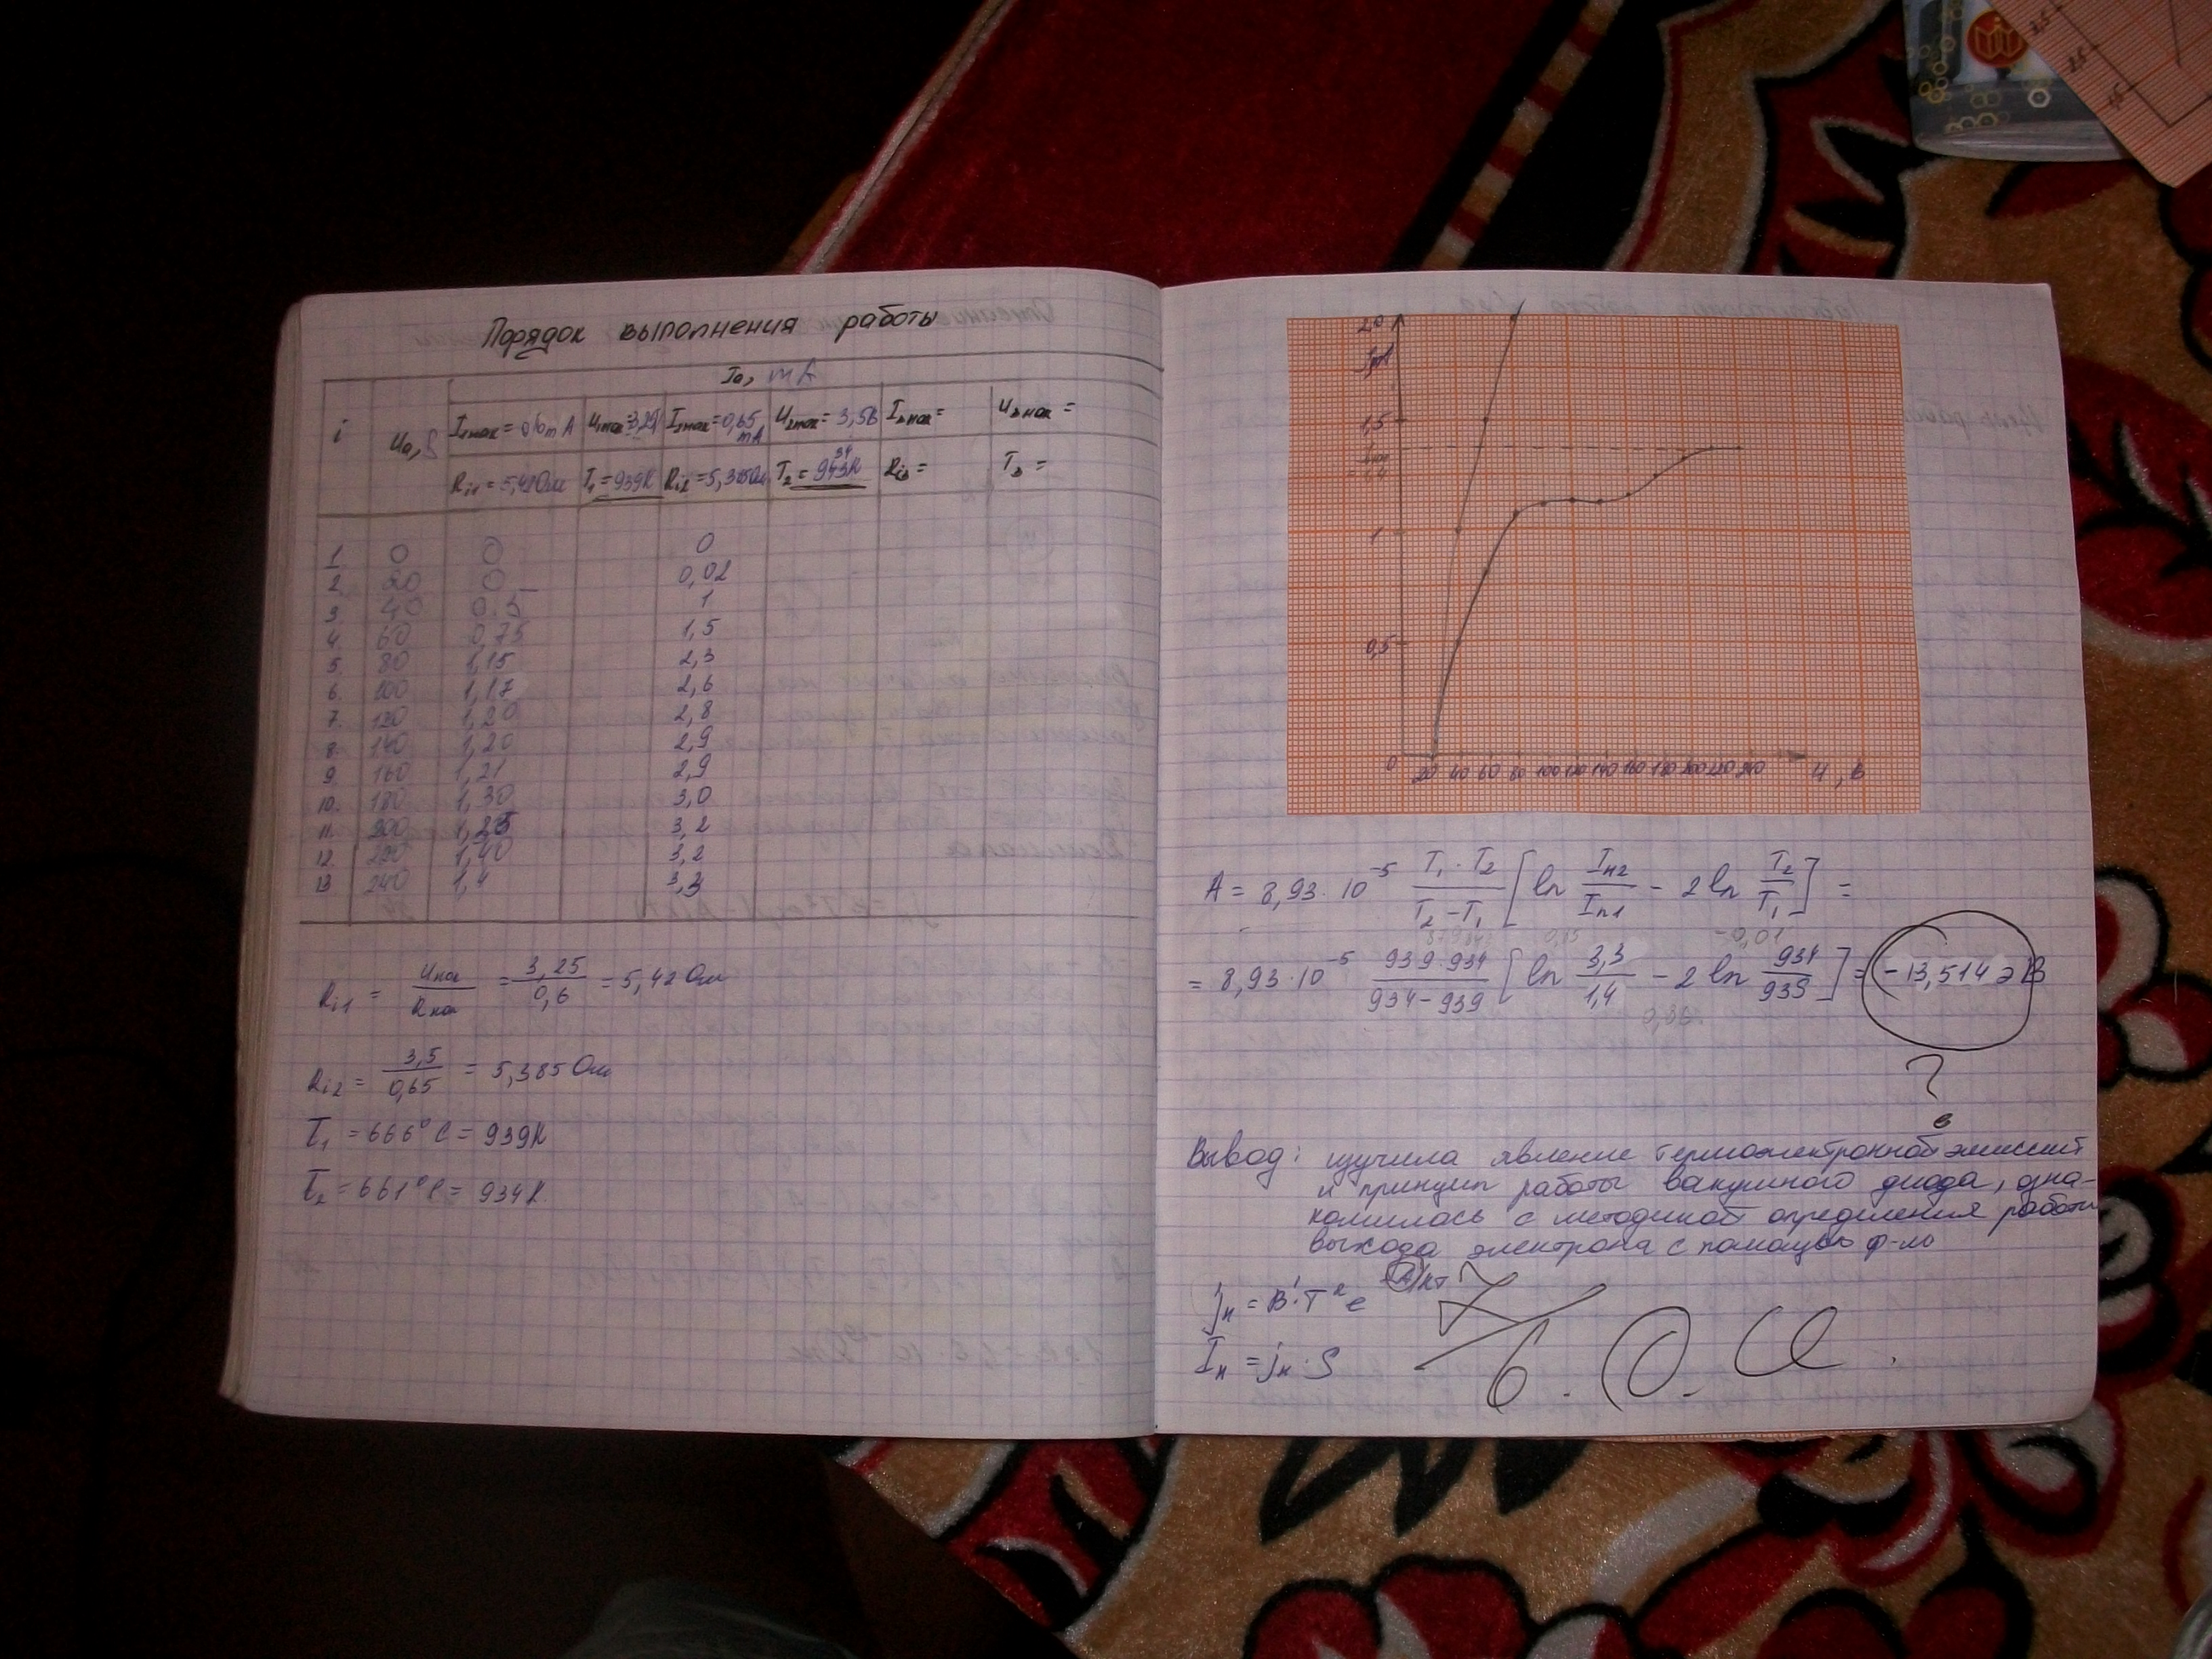 Порядок выполнения работы
Iа, mA
i Uа, В I1нак = 0,6 mA U1нак = 3,25 I2нак = 0,65 mA U2нак = 3,5В I3нак = U3нак =
Ri1 = 5,42Ом T1 = 939К Ri2 = 5,385Ом T2 = 934К Ri3 = T3 =
1. 0 0 0
2. 20 0 0,02
3. 40 0.5 1
4. 60 0,75 1,5
5. 80 1,15 2,3
6. 100 1,17 2,6
7. 120 1,20 2,8
8. 140 1,20 2,9
9. 160 1,21 2,9
10. 180 1,30 3,0
11. 200 1,25 3,2
12. 220 1,40 3,2
13 240 1,4 3,3
Ri1 = Uнак / Rнак = 3,25 / 0,6 = 5,42 Ом
Ri2 = 3,5 / 0,65 = 5,385 Ом
T1 = 666°C = 939К
T2 = 661°C = 934К
2.0
I, mA
1,5
1
0,5
0 20 40 60 80 100 120 140 160 180 200 220 240 U, В
A = 8,93 · 10⁻⁵ T1 · T2 / T2 − T1 [ ln Iн2 / Iн1 − 2 ln T2 / T1 ] =
= 8,93 · 10⁻⁵ 939 · 934 / 934 − 939 [ ln 3,3 / 1,4 − 2 ln 934 / 939 ] = −13,514 эВ
?
Вывод: изучила явление термоэлектронной эмиссии
и принцип работы вакуумного диода, озна-
комилась с методикой определения работы
выхода электрона с помощью ф-лы
jн = B'·T² e A/кТ
Iн = jн · S